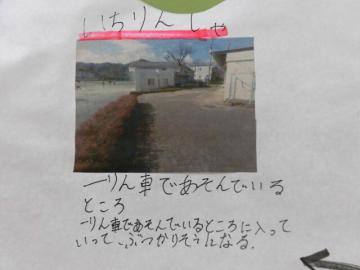 いちりんしゃ
一りん車であそんでいる
ところ
一りん車であそんでいるところに入って
いって、ぶつかりそうになる。